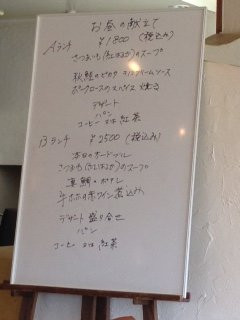 お昼の献立て
Aランチ ¥1800 (税込み)
さつまいも(紅はるか)のスープ
秋鮭のピカタ クリームソース
ポークロースのスパイス焼き
デザート
パン
コーヒー 又は 紅茶
Bランチ ¥2500 (税込み)
本日のオードブル
さつまいも(紅はるか)のスープ
真鯛のポワレ
牛ホホ肉赤ワイン煮込み
デザート盛り合せ
パン
コーヒー 又は 紅茶